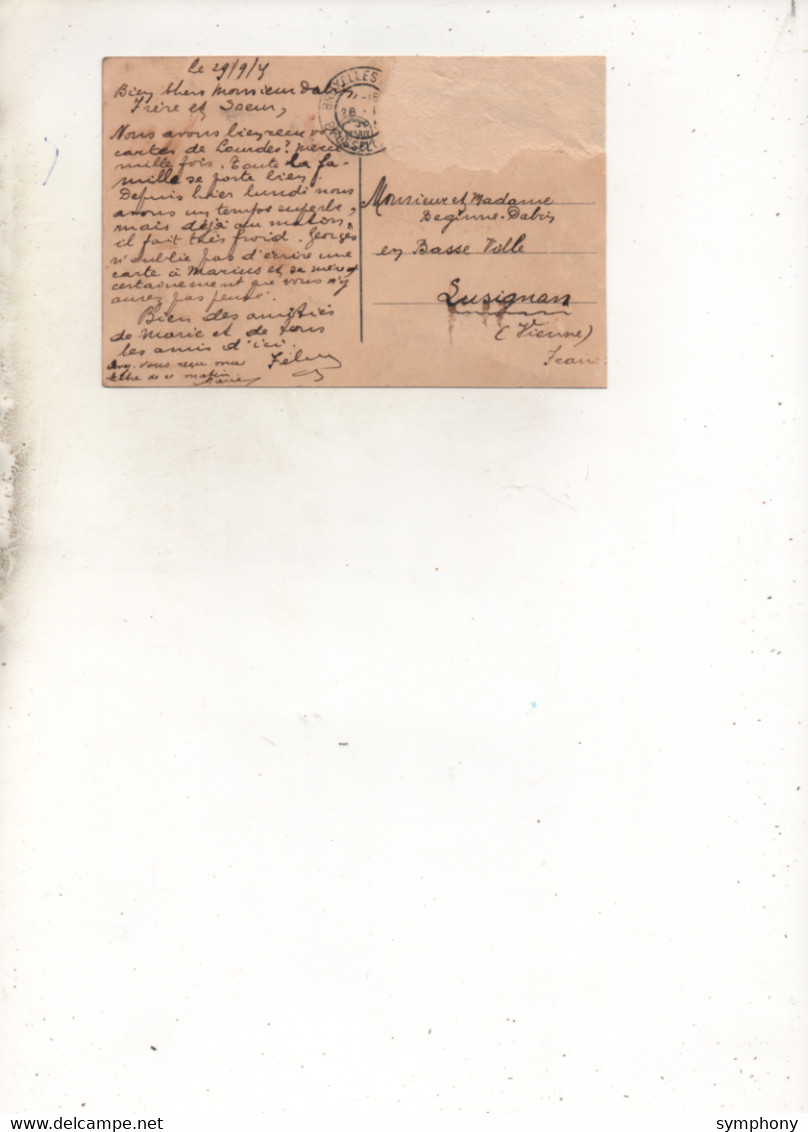 le 29/9/
Bien chers Monsieur Dabin,
Frère et Soeur,
Nous avons bien reçu vo
cartes de Lourdes? merci
mille fois. Toute la fa-
mille se porte bien.
Depuis hier lundi nous
avons un temps superbe,
mais déjà au matin,
il fait très froid. Georges
n'oublie pas d'écrire une
carte à Marius et sa mère
certainement que vous n'y
aurez pas pensé.
Bien des amitiés
de Marie et de tous
les amis d'ici.
Avez-vous reçu ma
lettre de ce matin
Marie
BRUXELLES
BRUSSEL
Monsieur et Madame
Beginne-Dabin
en Basse Ville
Lusignan
(Vienne)
delcampe.net
symphony